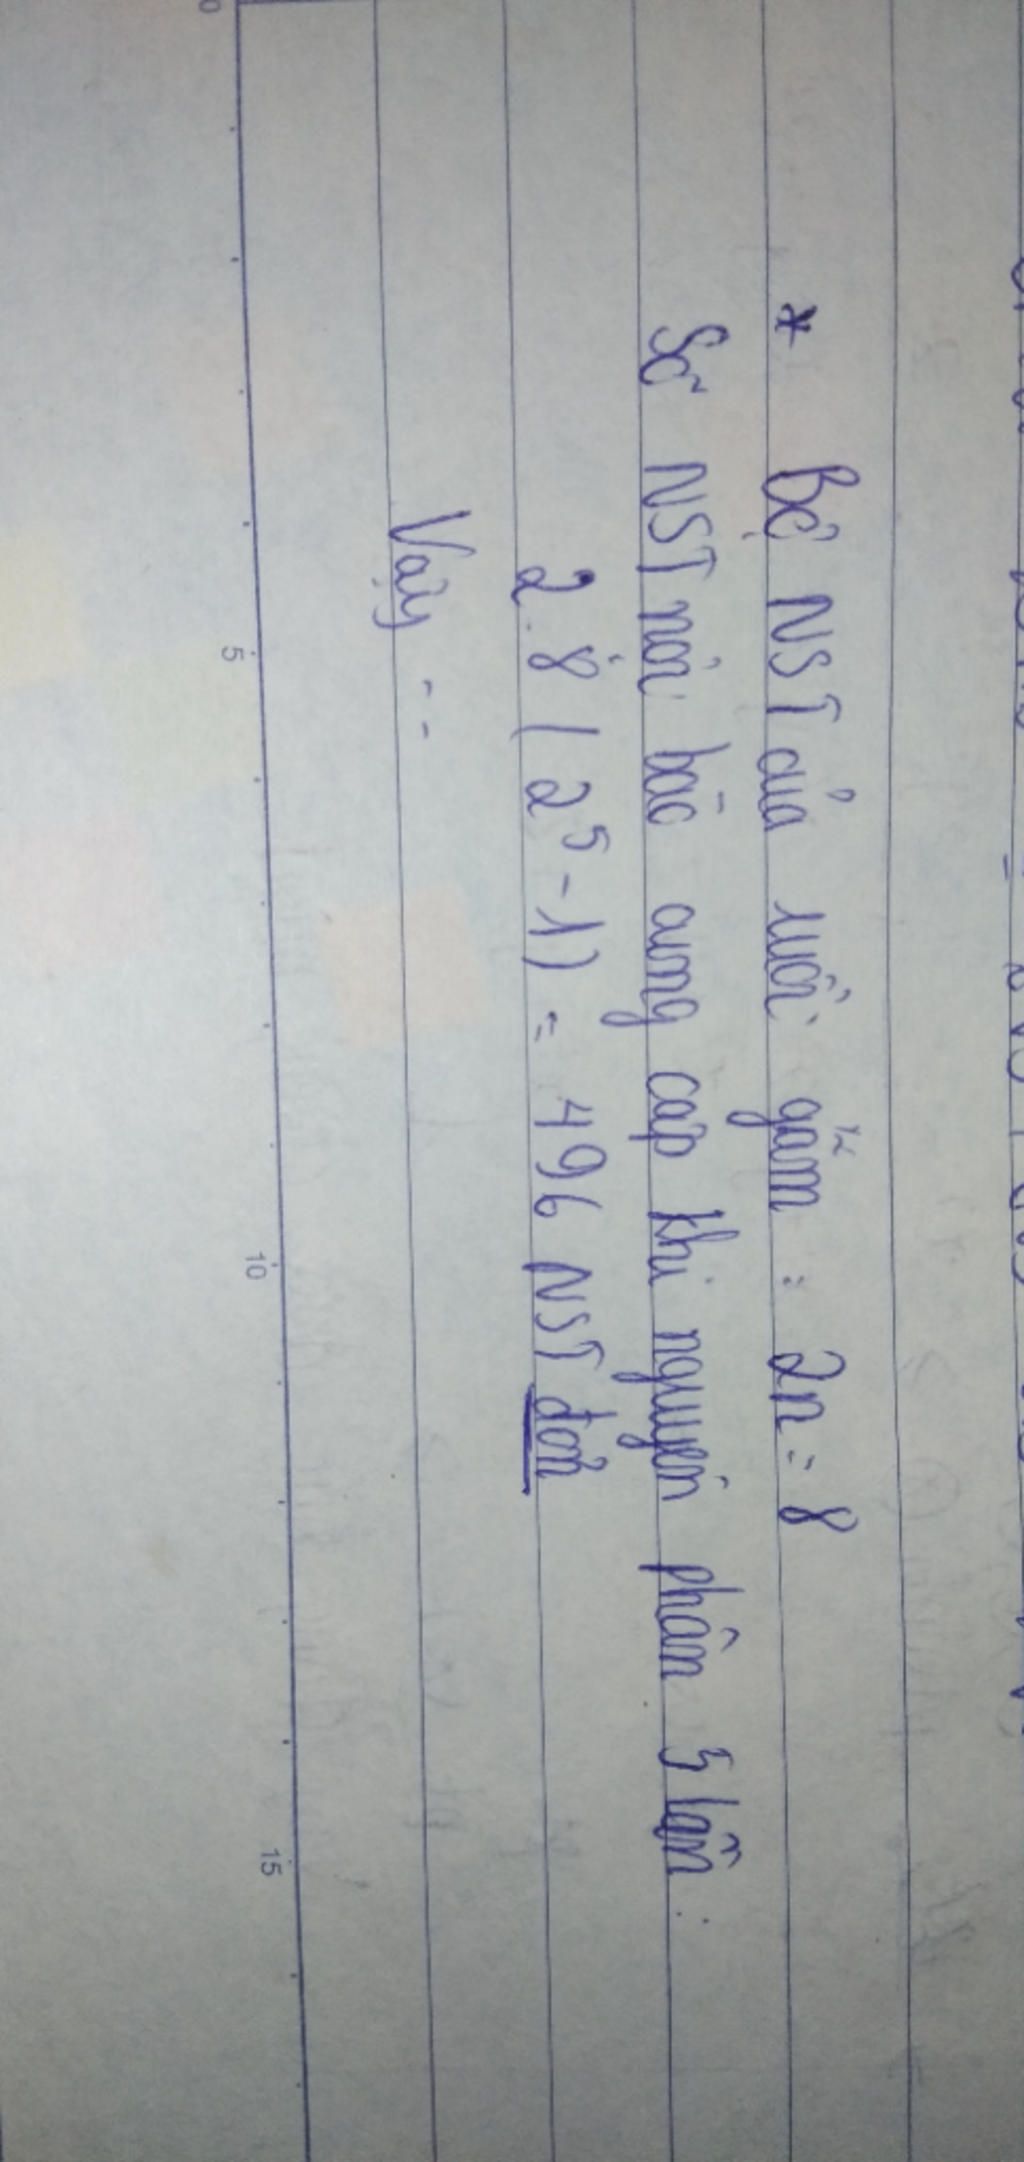 * Bộ NST của ruồi gấm = 2n = 8
Số NST nới bão cung cấp khi nguyên phân 5 lần :
2.8 ( 2⁵ - 1) = 496 NST đơn
Vậy --
0 5 10 15